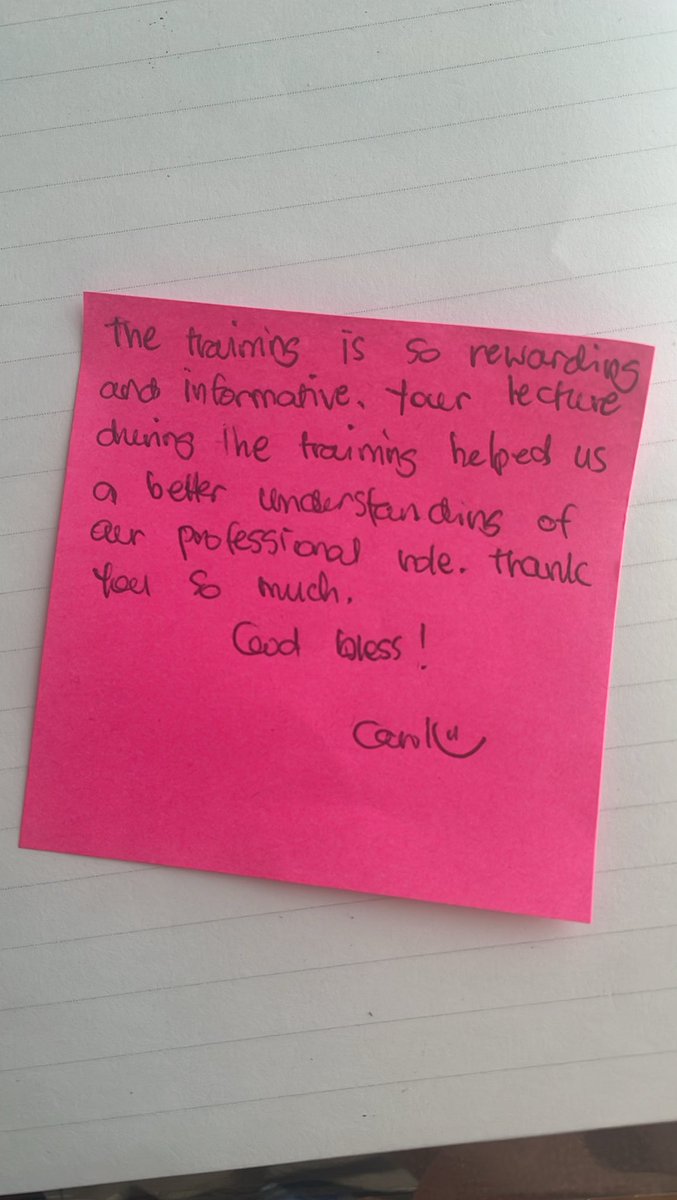 The training is so rewarding
and informative. Your lecture
during the training helped us
a better understanding of
our professional role. Thank
you so much.
God bless!
Carol